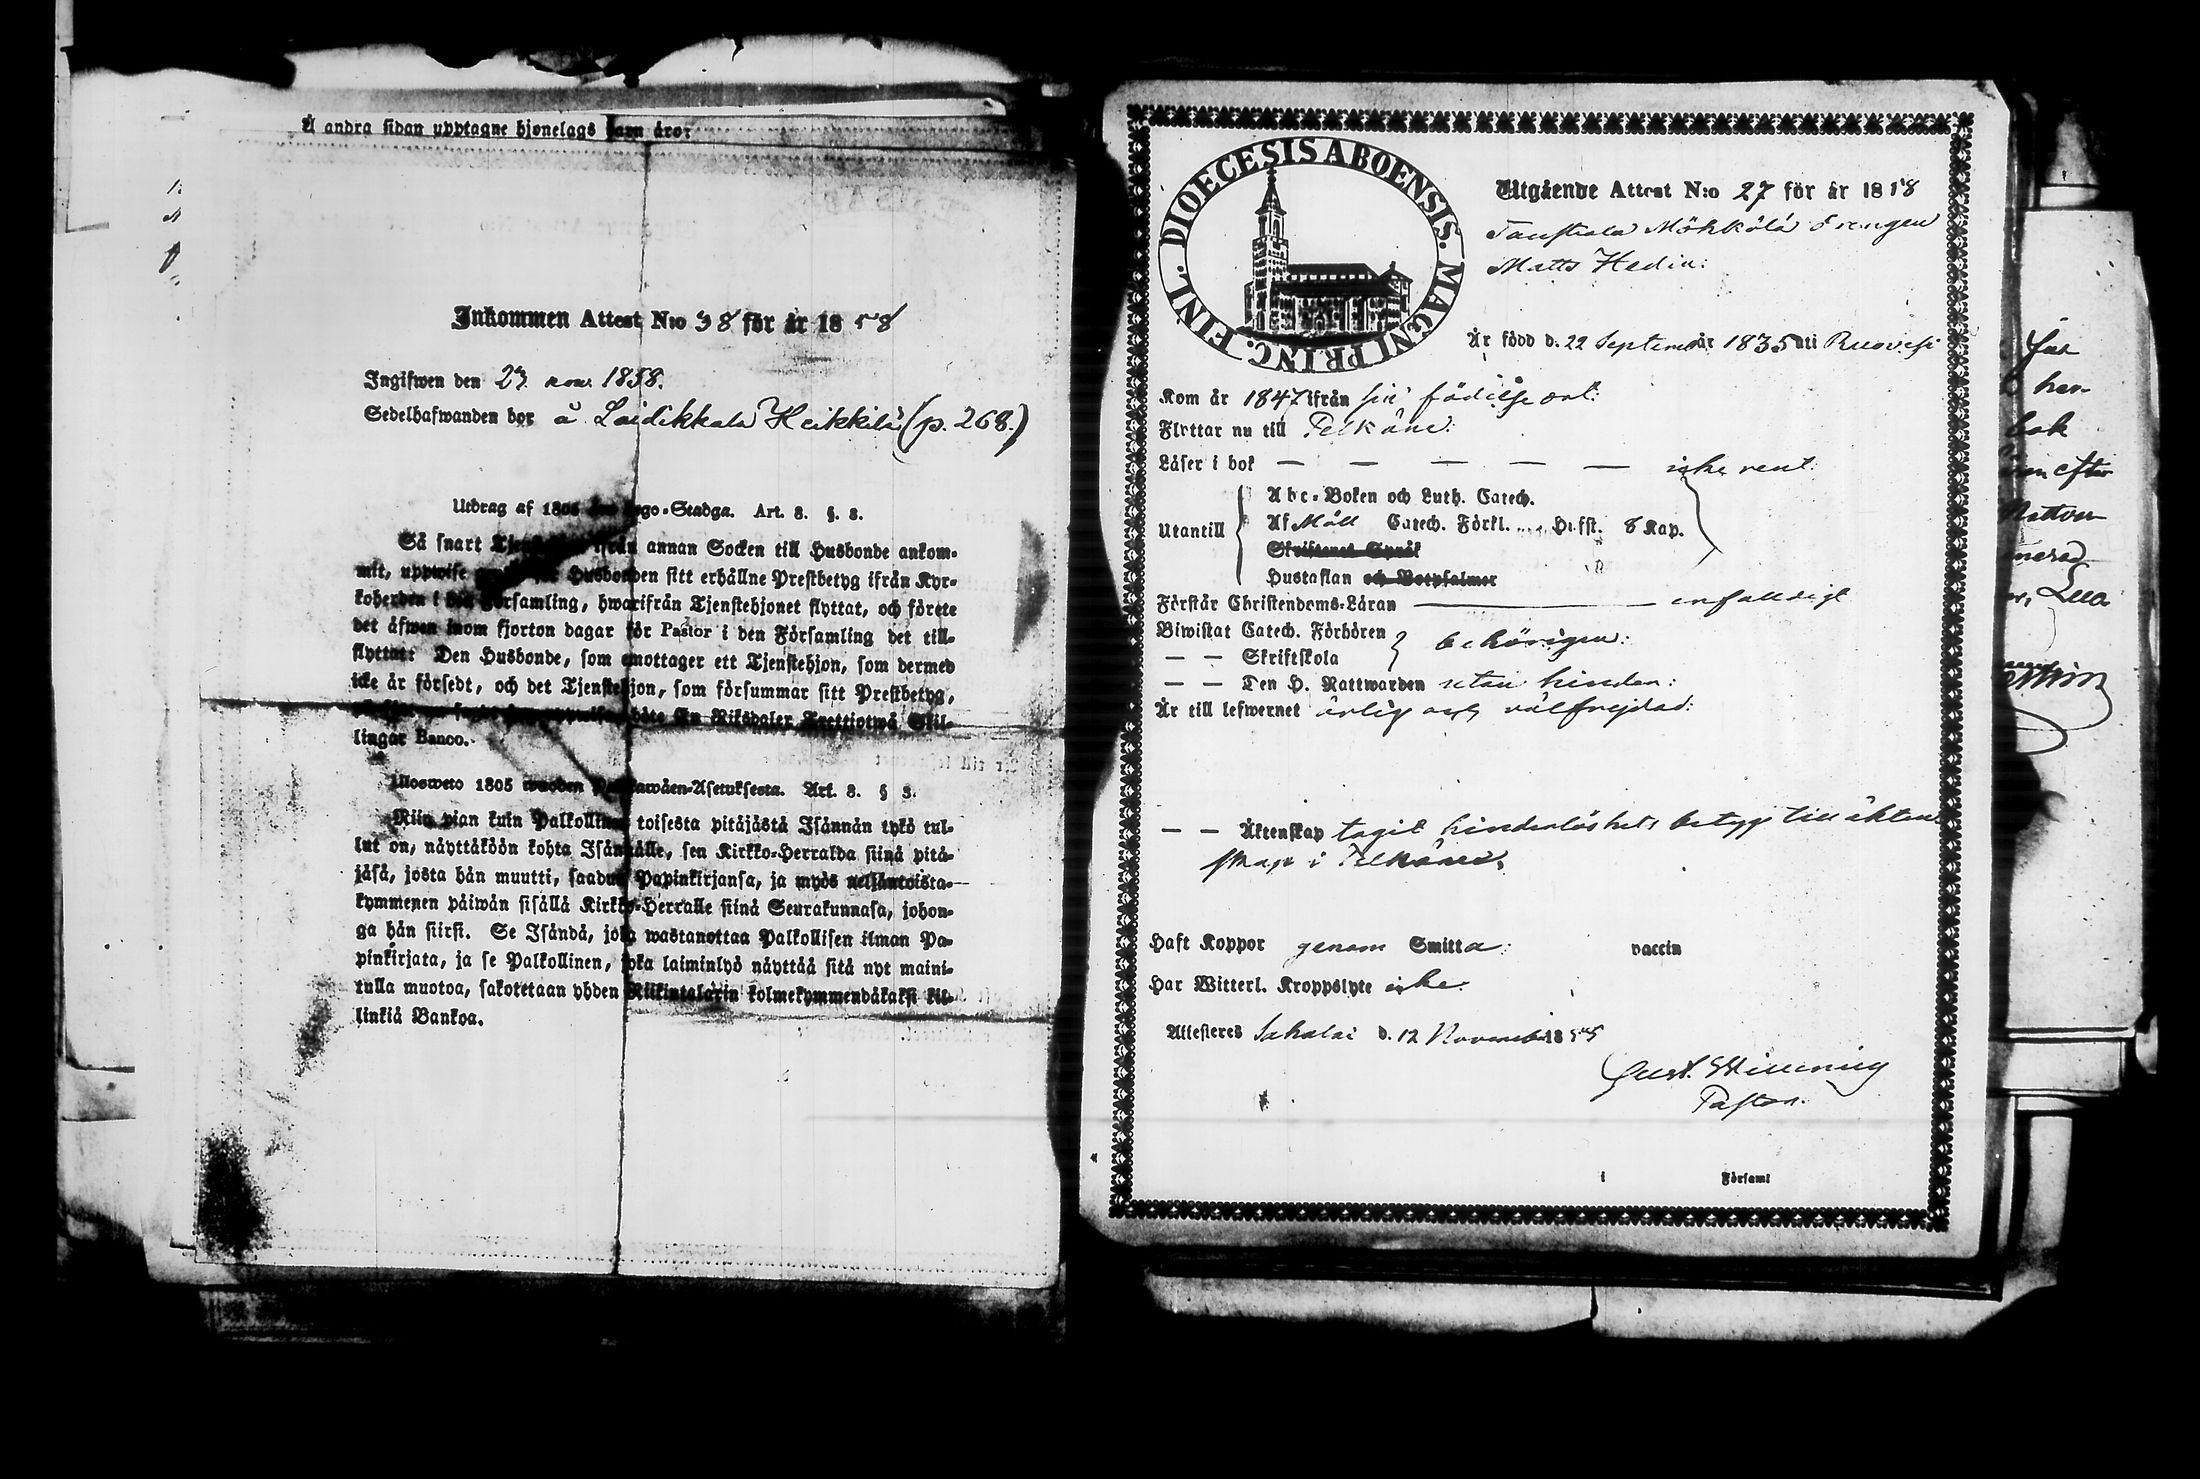 Å andra sidan upptagne hjonelags barn äro:
Inkommen Attest N:o 38 för år 1858
Ingifwen den 23 nov. 1858.
Sedelhafwanden bor å Laidikkala Heikkilä (p. 268.)
Utdrag af 1805 års Lego-Stadga. Art. 8. §. 8.
Så snart ifrån annan Socken till Husbonde ankom-
mit, uppwise Husbonden sitt erhållne Prestbetyg ifrån Kyr-
koherden i den Församling, hwarifrån Tjenstehjonet flyttat, och förete
det äfwen inom fjorton dagar för Pastor i den Församling det till-
flyttat: Den Husbonde, som emottager ett Tjenstehjon, som dermed
icke är försedt, och det Tjenstehjon, som försummar sitt Prestbetyg,
böte En Riksdaler Trettiotwå Skil-
lingar Banco.
Ulosweto 1805 wuoden Palkkawäen-Asetuksesta. Art. 8. § 3.
Niin pian kuin Palkollinen toisesta pitäjästä Isännän tykö tul-
lut on, näyttäköön kohta Isännälle, sen Kirkko-Herralda siinä pitä-
jäsä, josta hän muutti, saadun Papinkirjansa, ja myös neljäntoista-
kymmenen päiwän sisällä Kirkko-Herralle siinä Seurakunnasa, johon-
ga hän siirsi. Se Isändä, joka wastanottaa Palkollisen ilman Pa-
pinkirjata, ja se Palkollinen, joka laiminlyö näyttää sitä nyt maini-
tulla muotoa, sakotetaan yhden Riikintalarin kolmekymmendäkaksi kil-
linkiä Bankoa.
DIOECESIS ABOENSIS. MAGNI PRINC. FINL.
Utgående Attest N:o 27 för år 1858
Möhkölä drengen
Matts Hedin:
Är född d. 22 September år 1835 uti Ruovesi
Kom år 1847 ifrån sin födelse ort:
Flyttar nu till Pelkäne:
Läser i bok — — — — — icke rent
Abc-Boken och Luth. Catech.
Utantill Af Möll Catech. Förkl. Hufst. 8 Kap.
Skriftenes Språk
Hustaflan och Botpsalmer
Förstår Christendoms-Läran enfaldigt
Biwistat Catech. Förhören
— — Skriftskola behörigen:
— — Den H. Nattwarden utan hinder:
Är till lefwernet ärlig och välfrejdad:
— — Äktenskap tagit hinderlöshets betyg till äkten
skap i Pelkäne.
Haft Koppor genom Smitta: vaccin
Har Witterl. Kroppslyte icke.
Attesteras Sahalax d. 12 November 18
Gust.
Pastor.
i Församl
för
bok
efter